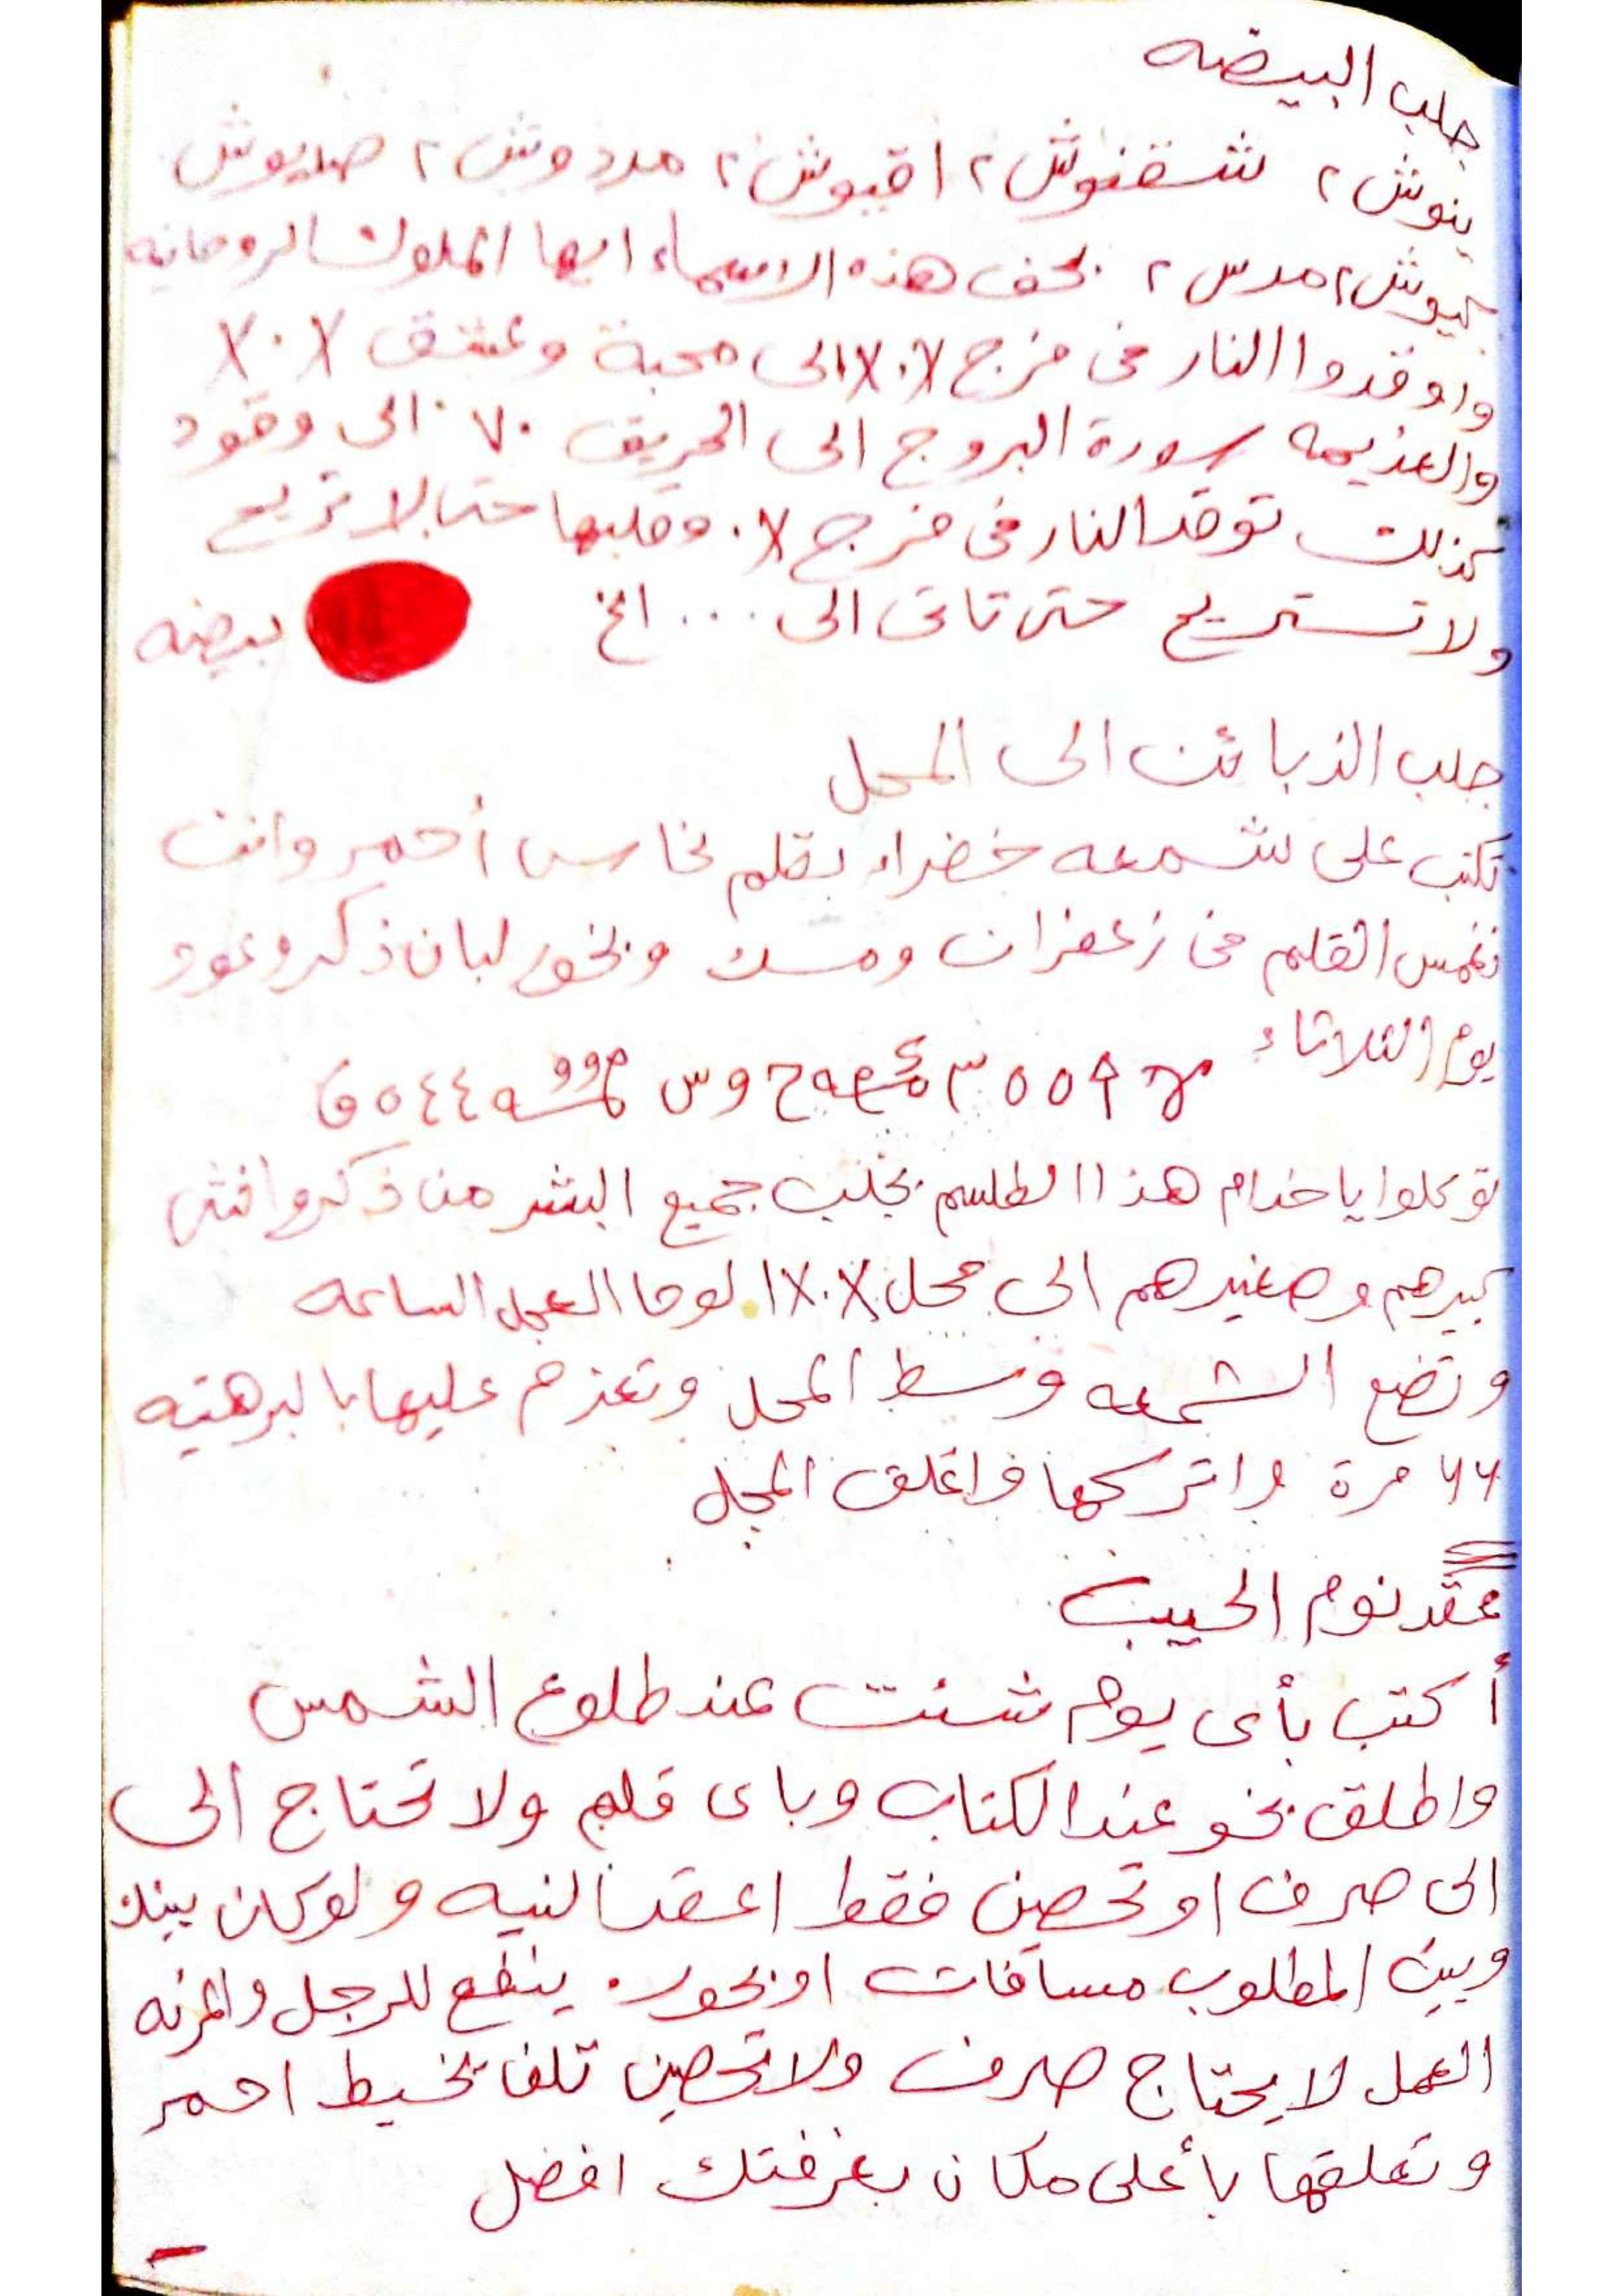 جلب البيضه
ينوش ٢ شقنوش ٢ اقيوش ٢ مردوش ٢ صديوش
٢ مدس ٢ بحق هذه الاسماء ايها الملوك الروحانيه
واوقدوا النار فى فرج الى محبة وعشق
والعذيمه سورة البروج الى الحريق ٧٠ الى وقود
كذلك توقد النار فى فرج وقلبها حتى لا تريح
ولا تستريح حتى تاتى الى ... الخ بيضه
جلب الذبائن الى المحل
تكتب على شمعه خضراء بقلم نحاس أحمر وانت
تغمس القلم فى زعفران ومسك وبخور لبان ذكر وعود
يوم الثلاثاء
توكلوا يا خدام هذا الطلسم بجلب جميع البشر من ذكر وانثى
كبيرهم وصغيرهم الى محل الوحا العجل الساعه
وتضع الشمعه وسط المحل وتعزم عليها بالبرهتيه
٦٦ مرة واتركها واغلق المحل
عقد نوم الحبيب
أكتب بأى يوم شئت عند طلوع الشمس
واطلق بخو عند الكتاب وباى قلم ولا تحتاج الى
الى صرف او تحصين فقط اعقد النيه ولو كان بينك
وبين المطلوب مسافات او بحور. ينفع للرجل والمرئه
العمل لا يحتاج صرف ولا تحصين تلفا بخيط احمر
وتعلقها بأعلى مكان بغرفتك افضل